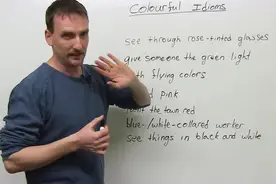 Colourful Idioms
see through rose-tinted glasses
give someone the green light
flying colors
pink
the town red
blue-/white-collared worker
see things in black and white